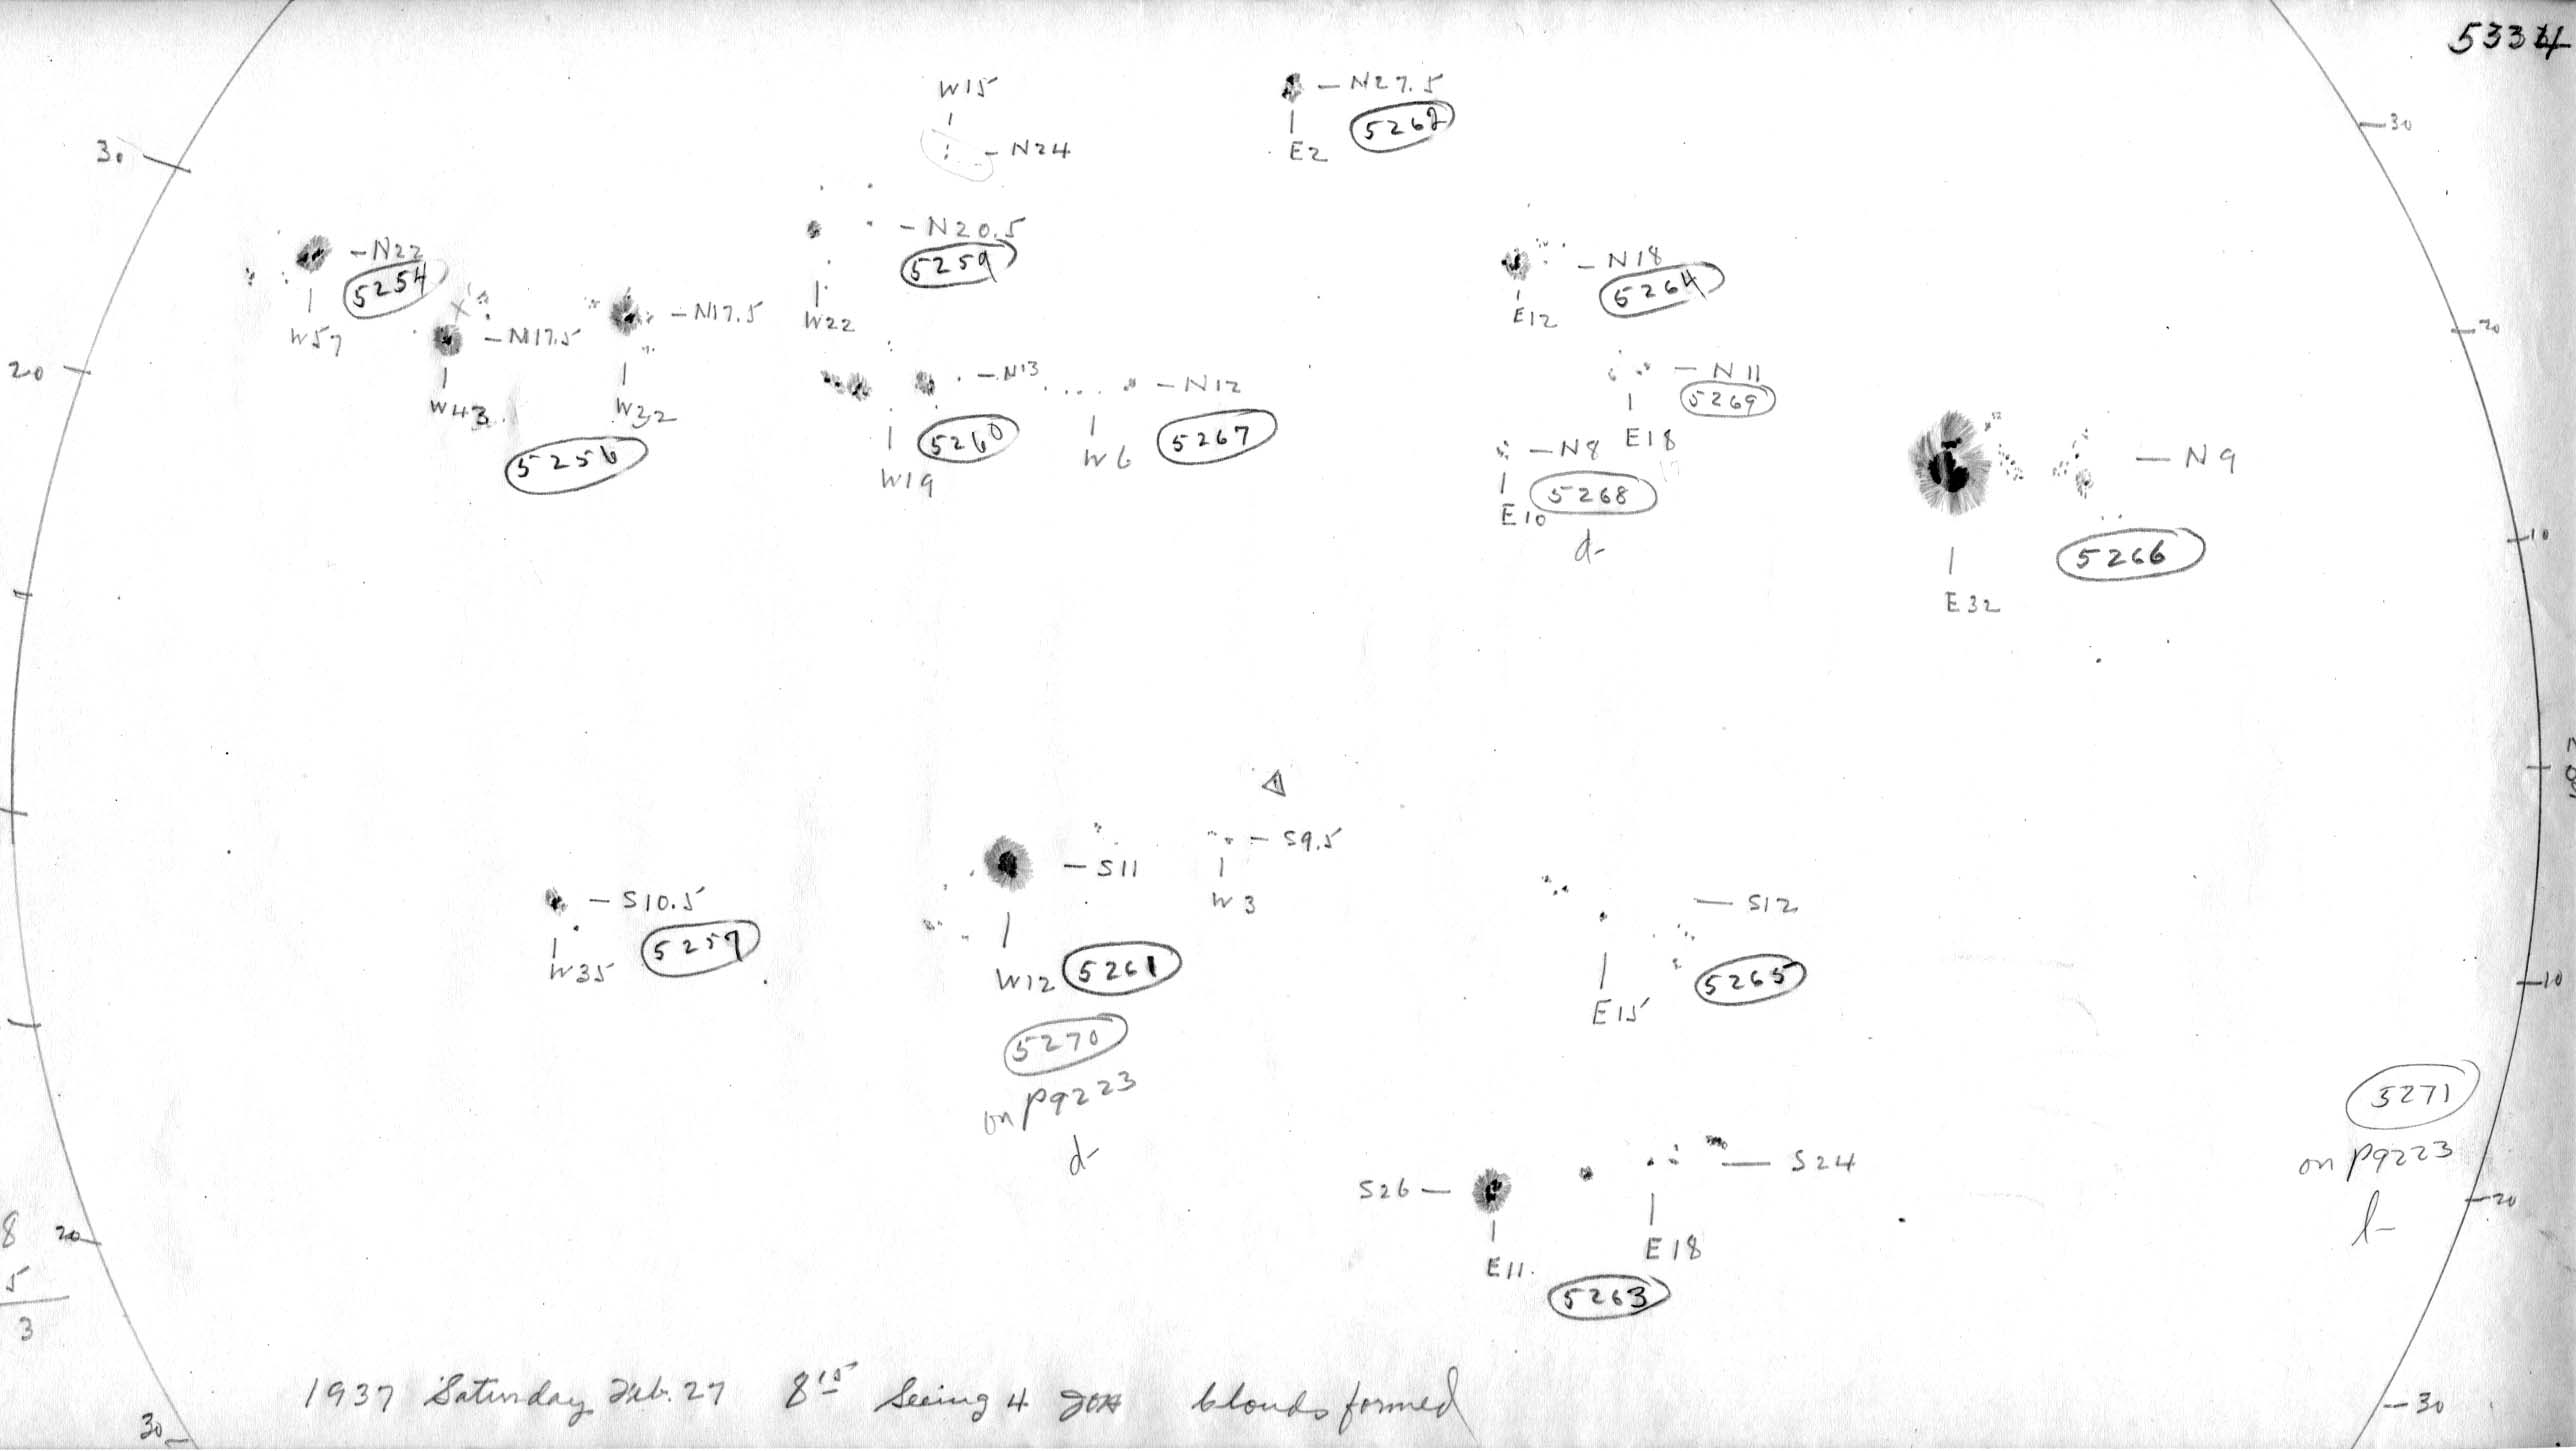 5334
W15
- N24
- N27.5
E2
5262
30
30
- N20.5
5259
W22
- N22
5254
W57
- N17.5
W43
- N17.5
W32
5256
- N18
5264
E12
20
20
- N13
5260
W19
- N12
W6
5267
- N11
5269
E18
- N8
5268
E10
d-
- N9
5266
E32
10
- S9.5
W3
- S11
W12
5261
5270
on P9223
d-
- S10.5
5257
W35
- S12
5265
E15
10
5271
on P9223
l-
S26 -
E11
- S24
E18
5263
20
20
8
5
3
1937 Saturday Feb. 27 8 15 Seeing 4 clouds formed
30
30